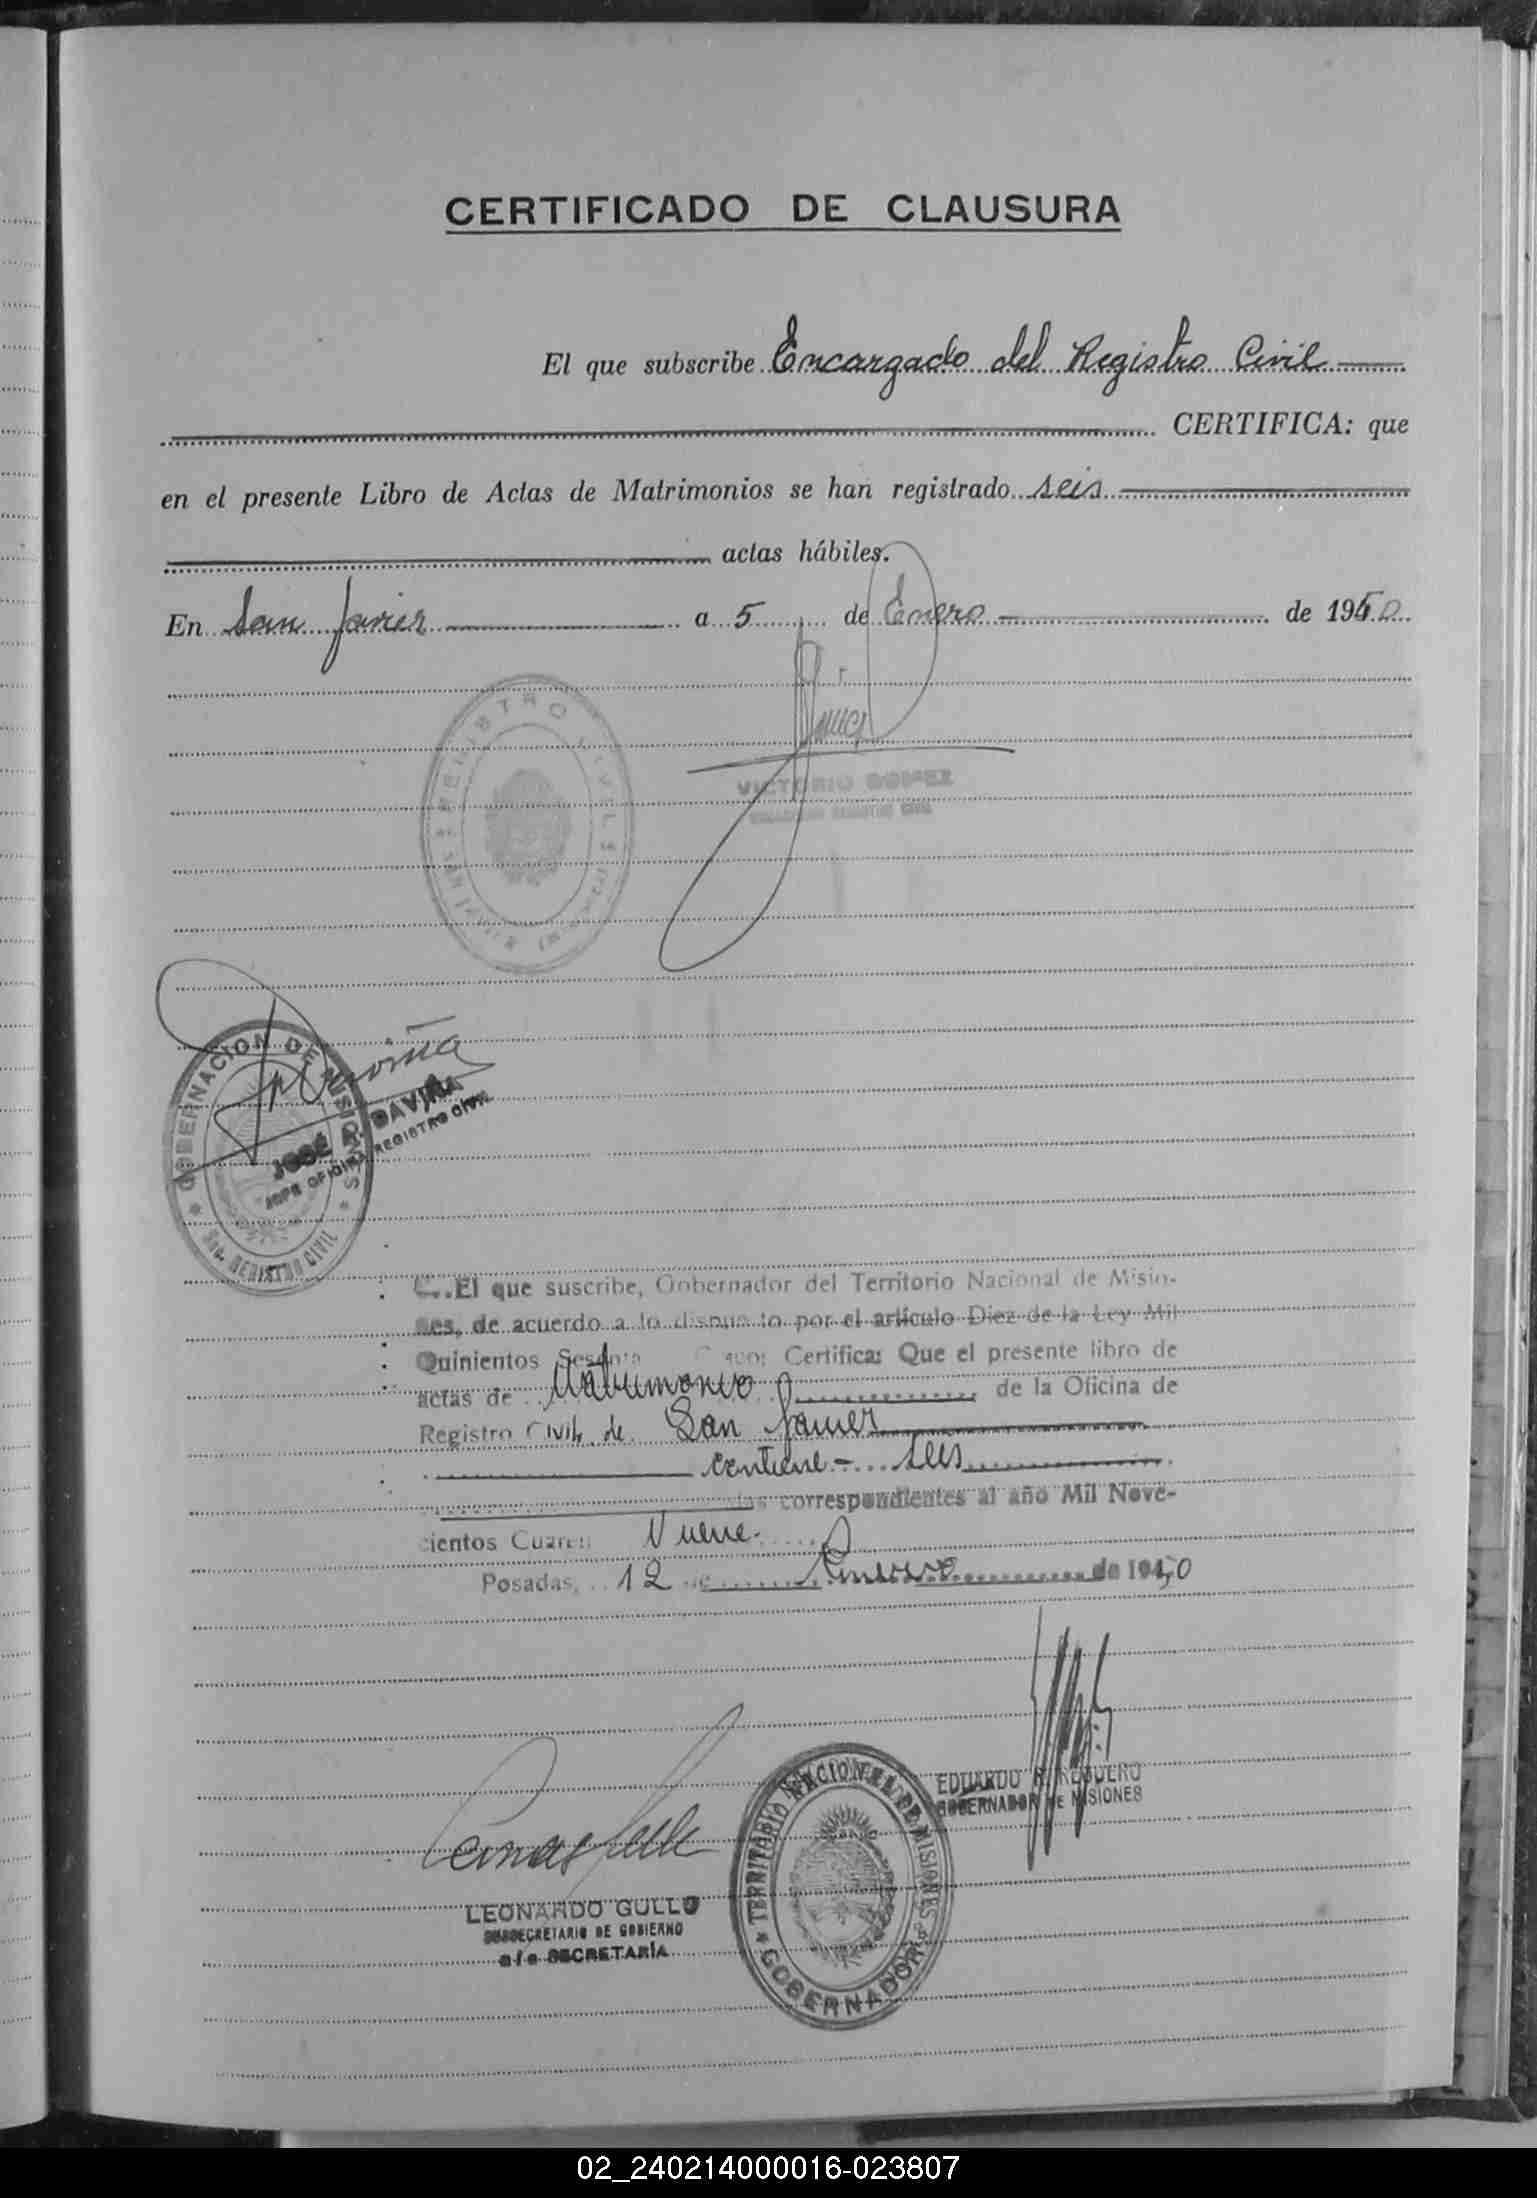 CERTIFICADO DE CLAUSURA
El que subscribe Encargado del Registro Civil
CERTIFICA: que
en el presente Libro de Actas de Matrimonios se han registrado seis
actas hábiles.
En San Javier a 5 de Enero de 1950
REGISTRO CIVIL
VICTORIO GOMEZ
ENCARGADO REGISTRO CIVIL
GOBERNACION DE MISIONES
REGISTRO CIVIL
JOSÉ R. DAVIÑA
JEFE OFICINA REGISTRO CIVIL
El que suscribe, Gobernador del Territorio Nacional de Misio-
nes, de acuerdo a lo dispuesto por el artículo Diez de la Ley Mil
Quinientos Sesenta Certifica: Que el presente libro de
actas de Matrimonio de la Oficina de
Registro Civil de San Javier
contiene - seis
correspondientes al año Mil Nove-
cientos Cuaren Nueve.
Posadas, 12 de Enero de 1950
EDUARDO REGUERO
GOBERNADOR DE MISIONES
TERRITORIO NACIONAL DE MISIONES
GOBERNADOR
LEONARDO GULLO
SUBSECRETARIO DE GOBIERNO
a/c SECRETARÍA
02_240214000016-023807